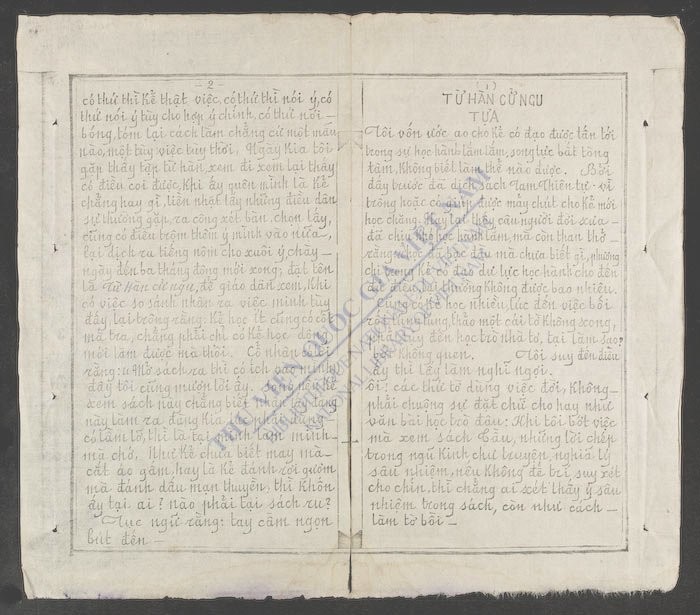 (1)
TỪ HÀN CỬ NGU
TỰA
Tôi vốn ước ao cho kẻ có đạo được tấn tới
trong sự học hành lắm lắm, song lực bất tòng
tâm, không biết làm thể nào được. Bởi
đấy trước đã có ra sách Tam Thiên tự vì
trông hoặc có giúp được mấy chút cho kẻ mới
học chăng. Nay lại thấy câu người đời xưa
đã chịu khó học hành lắm, mà còn than thở
rằng: học đã bạc đầu mà chưa biết gì, phương
chi trong kẻ có đạo dư lực học hành cho đến
bạc đầu thì thường không được bao nhiêu.
Cũng có kẻ học nhiều, lúc đến việc bối
rối túng tung, thảo một cái tờ không xong,
phải quay đến học trò nhà tơ, tại làm sao?
tại không quen. Tôi suy đến điều
ấy thì lấy làm nghĩ ngợi.
Ôi! các thứ tờ dùng việc đời, không
phải chuộng sự đặt chữ cho hay như
văn bài học trò đâu: Khi tôi bớt việc
mà xem sách Tàu, những lời chép
trong ngũ Kinh chư truyện, nghĩa lý
sâu nhiệm, nếu không để trí suy xét
cho chín, thì chẳng ai xét thấy ý sâu
nhiệm trong sách, còn như cách
làm tờ bồi
2
có thứ thì kể thật việc, có thứ thì nói ý, có
thứ nói ý tùy cho hợp ý chính, có thứ nói
bóng, tóm lại cách làm chẳng cứ một mẫu
nào, một tùy việc tùy thời. Ngày kia tôi
gặp thấy tập từ hàn, xem đi xem lại thấy
có điều coi được, khi ấy quên mình là kẻ
chẳng hay gì, liền nhặt lấy những điều dân
sự thường gặp, ra công xét bàn, chọn lấy,
cũng có điều trộm thêm ý mình vào nữa,
lại dịch ra tiếng nôm cho xuôi ý chảy
ngày đến ba tháng đông mới xong, đặt tên
là Từ Hàn cử ngu, để giáo dân xem, khi
có việc so sánh nhân ra việc mình tùy
đấy, lại trông rằng: kẻ học ít cũng có cốt
mà tra, chẳng phải chỉ có kẻ học rộng
mới làm được mà thôi. Cổ nhân nói
rằng: Mở sách ra thì có ích vào mình
đấy tôi cũng mượn lời ấy. Song nếu kẻ
xem sách này chẳng biết nhân lấy đàng
này làm ra đàng kia, mà nhận rằng
có lầm tờ, thì là tại mình làm mình
mà chớ. Như kẻ chưa biết may mà
cắt áo gấm, hay là kẻ đánh rơi gươm
mà đánh dấu mạn thuyền, thì khốn
ấy tại ai? nào phải tại sách ru?
Tục ngữ rằng: tay cầm ngọn
bút đèn
THƯ VIỆN QUỐC GIA VIỆT NAM
BIBLIOTHÈQUE NATIONALE DU VIETNAM
NATIONAL LIBRARY OF VIETNAM